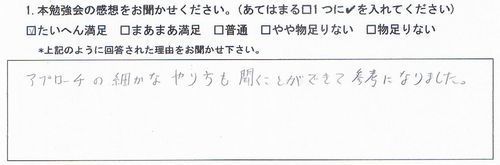 1. 本勉強会の感想をお聞かせください。(あてはまる□1つに✔を入れてください)
☑たいへん満足 □まあまあ満足 □普通 □やや物足りない □物足りない
*上記のように回答された理由をお聞かせ下さい。
アプローチの細かなやり方も聞くことができて参考になりました。